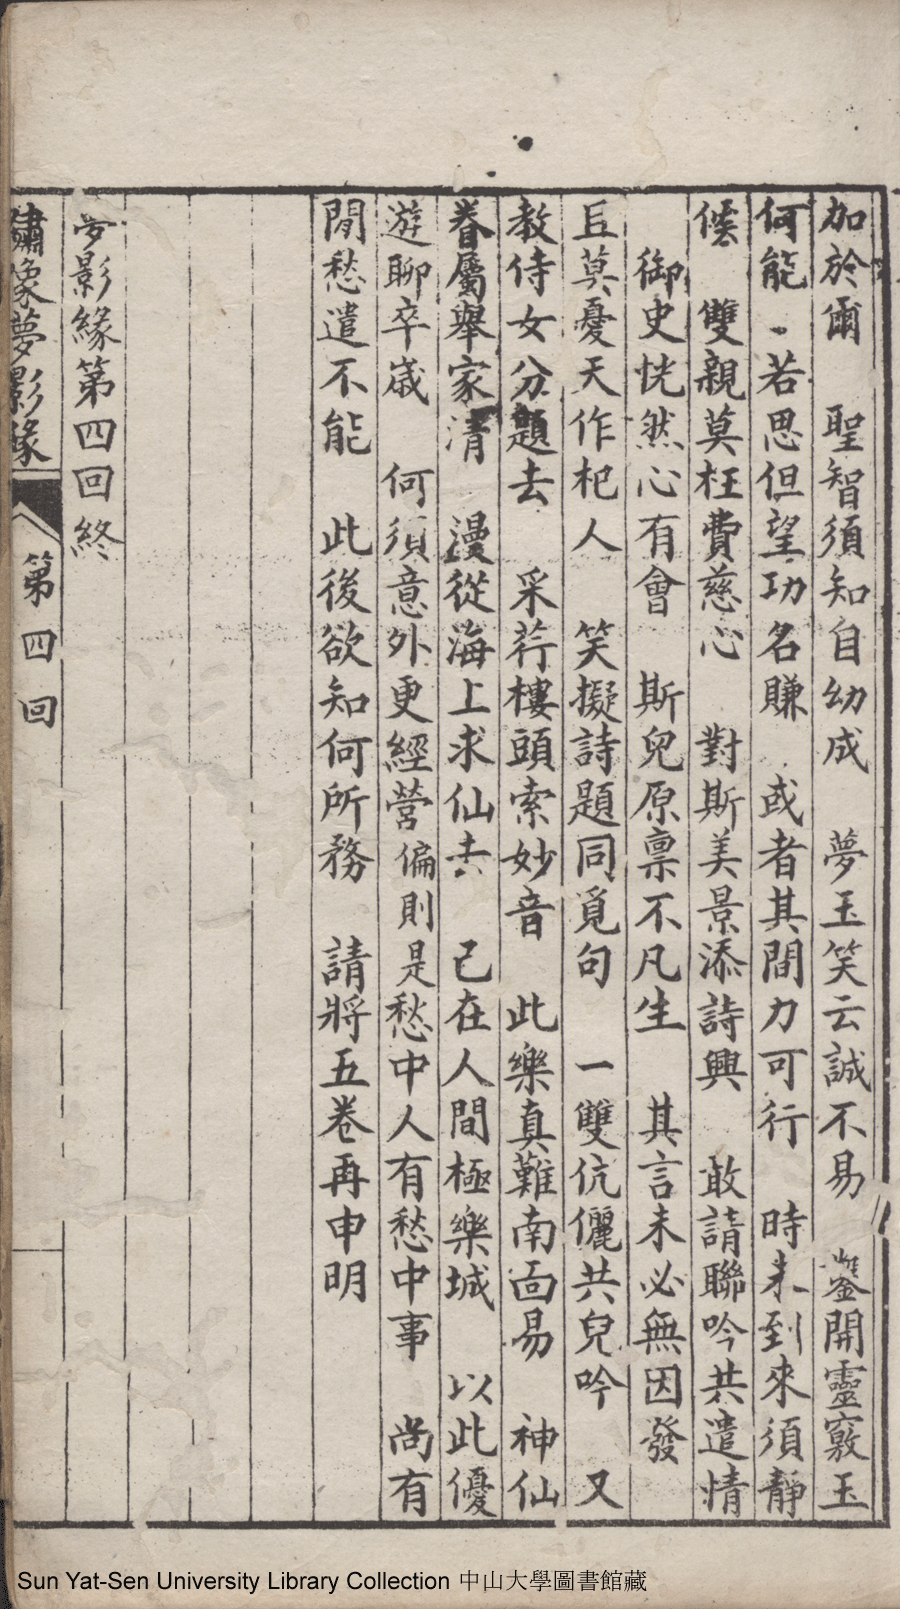 加於爾　聖智須知自幼成　夢玉笑云誠不易　鑿開靈竅玉
何能　若思但望功名賺　或者其間力可行　時未到來須靜
候　雙親莫枉費慈心　對斯美景添詩興　敢請聯吟共遣情
御史恍然心有會　斯兒原禀不凡生　其言未必無因發
且莫憂天作杞人　笑擬詩題同覓句　一雙伉儷共兒吟　又
教侍女分題去　采荇樓頭索妙音　此樂真難南面易　神仙
眷屬舉家清　漫從海上求仙去　已在人間極樂城　以此優
遊聊卒歲　何須意外更經營偏則是愁中人有愁中事　尚有
閒愁遣不能　此後欲知何所務　請將五卷再申明
夢影緣第四回終
繡像夢影緣　第四回
Sun Yat-Sen University Library Collection 中山大學圖書館藏